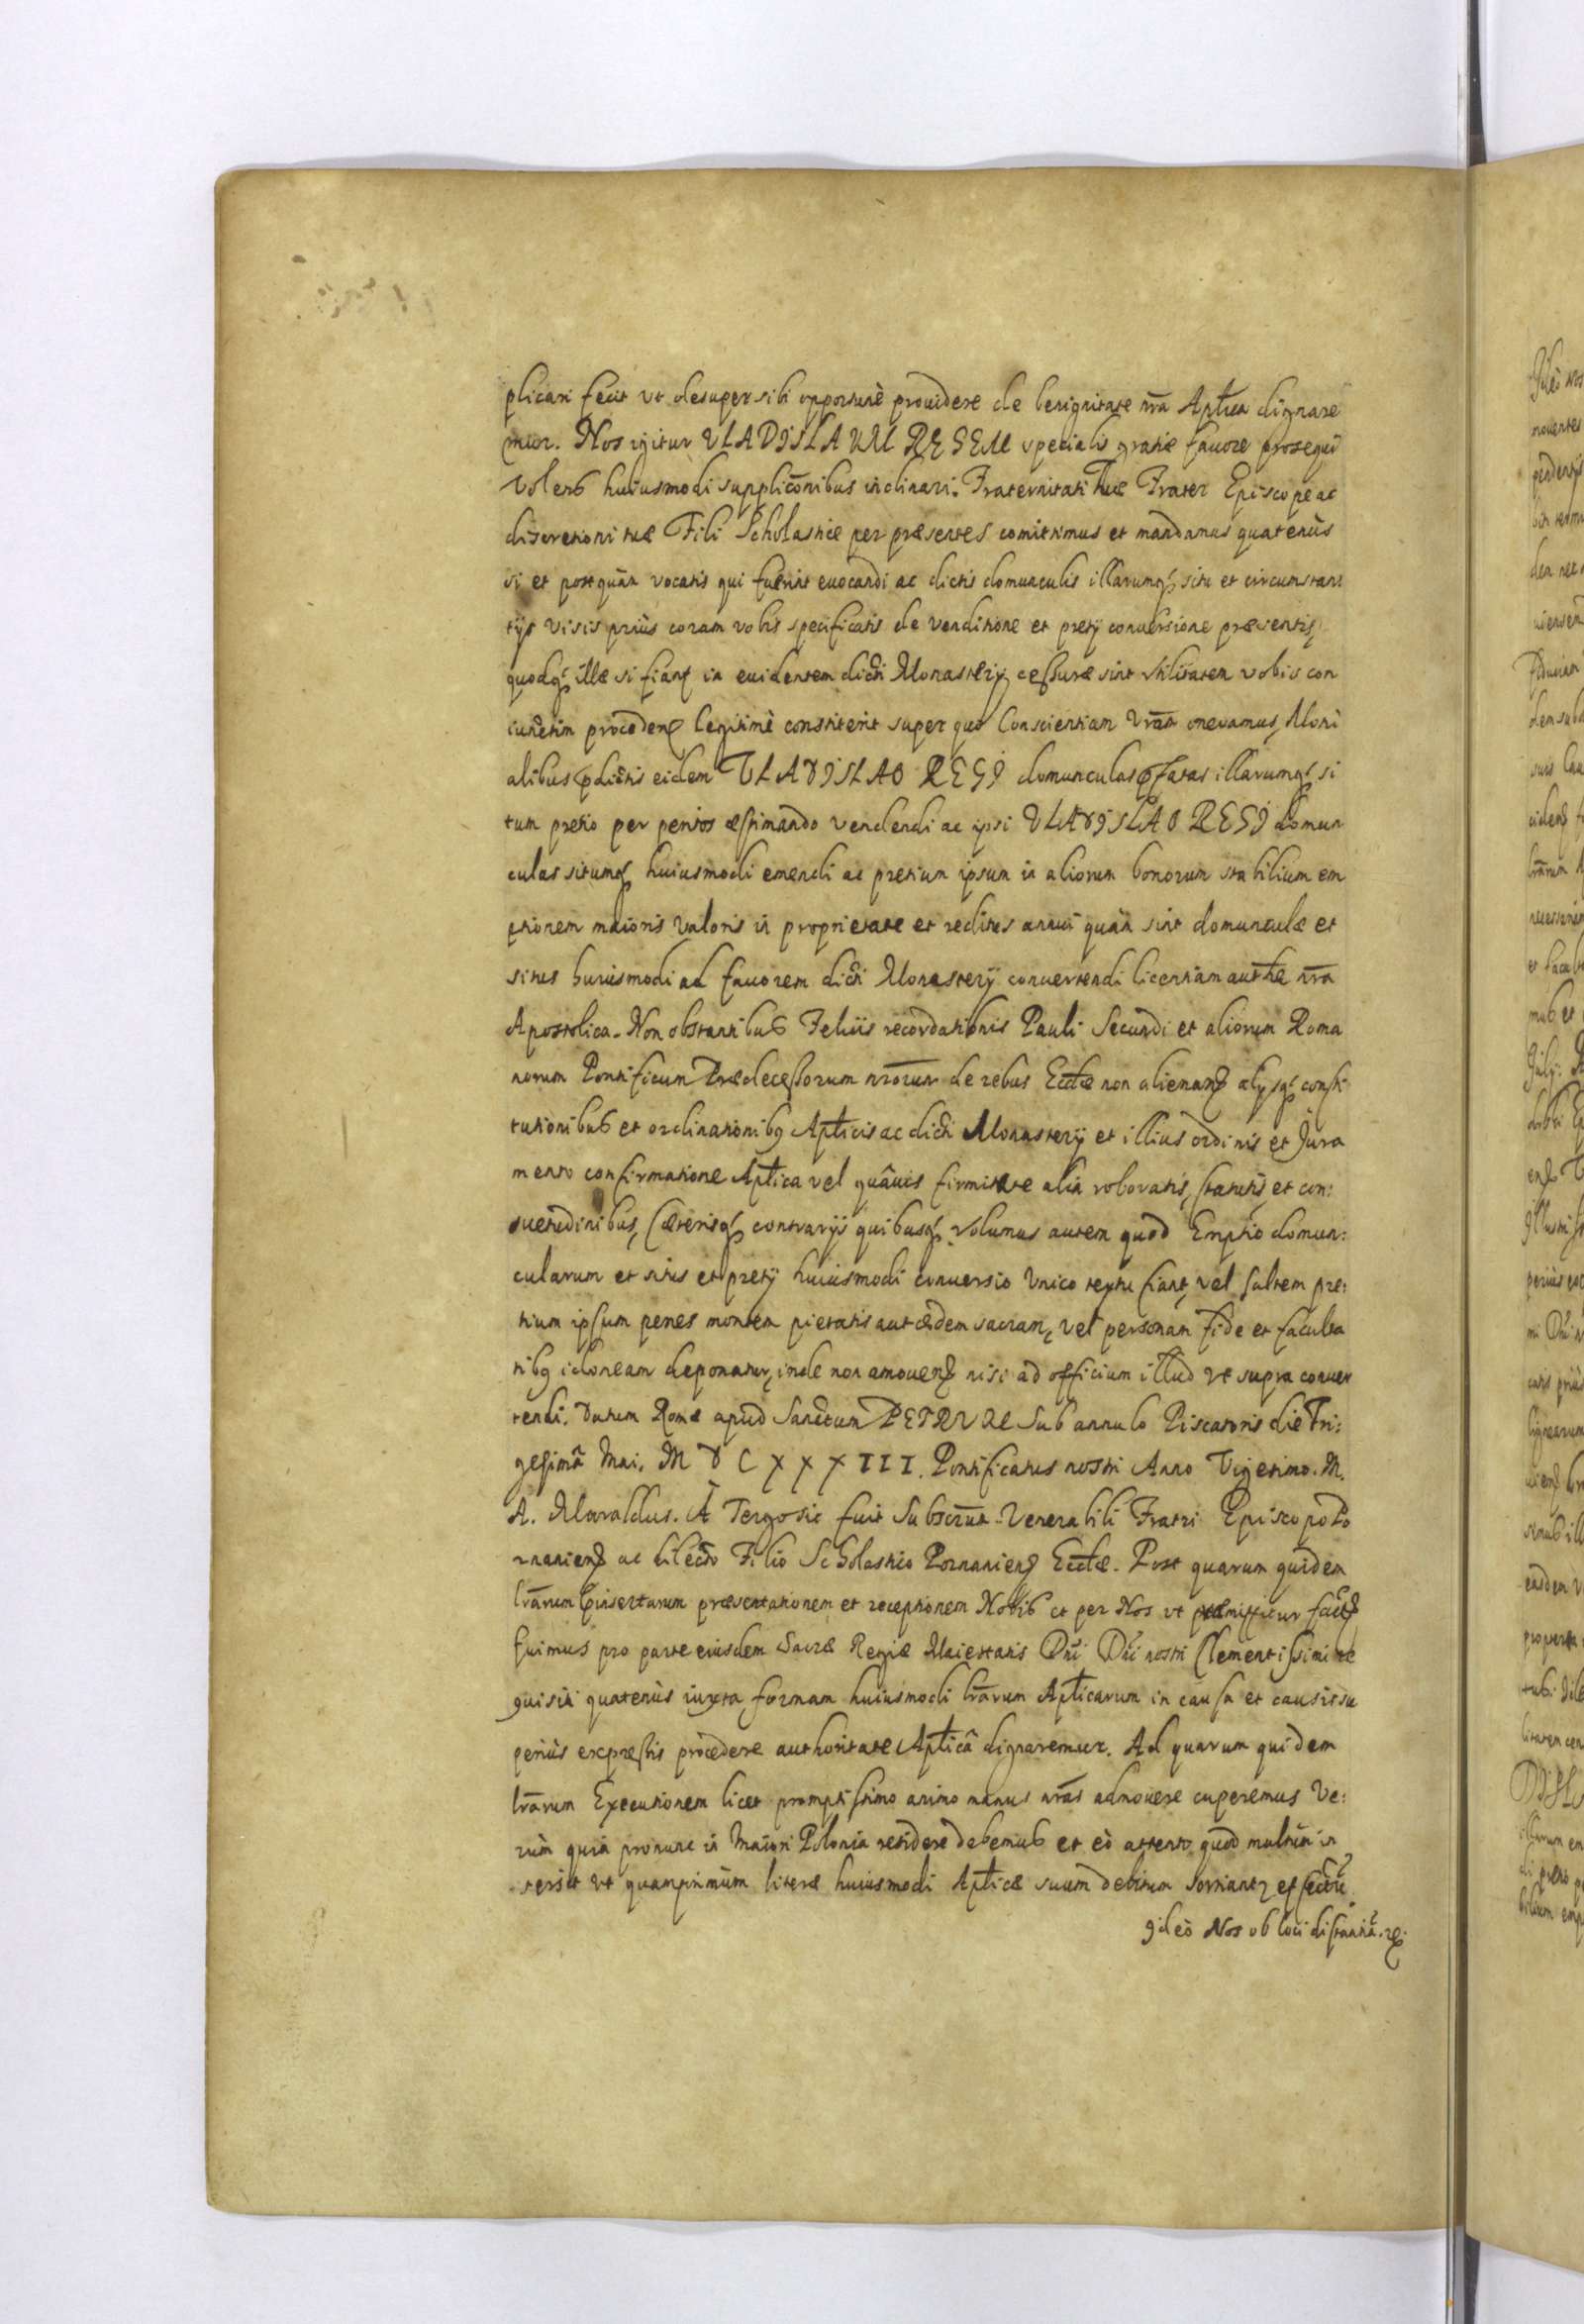 plicari fecit vt desuper sibi opportunè prouidere de benignitate nrã Aplica dignare
mur. Nos igitur VLADISLAUM REGEM specialis gratiæ fauore prosequi
volens huiusmodi supplicõnibus inclinari. Fraternitati Tuæ Frater Episcope ac
discretioni tuæ Fili Scholastice per præsentes comittimus et mandamus quatenùs
si et postquàm vocatis qui fuerint euocandi ac dictis domunculis illarumq situ et circumstan
tijs visis priùs coram vobis specificatis de venditione et pretij conuersione præsentis,
quodq illæ si fiant in euidentem dicti Monasterij cessuræ sint vtilitatem vobis con
iunctim proceden legitimè constiterit super quo Conscientiam vrãm oneramus, Moni
alibus pdictis eidem VLADISLAO REGI domunculas pfatas illarumq si
tum pretio per peritos æstimando vendendi ac ipsi VLADISLAO REGI domun
culas situmq huiusmodi emendi ac pretium ipsum in aliorum bonorum stabilium em
ptionem maioris valoris in proprietate et reditus annui quàm sint domunculæ et
situs huiusmodi ad fauorem dicti Monasterij conuertendi licentiam authe nrã
Apostolica. Non obstantibus Felicis recordationis Pauli Secundi et aliorum Roma
norum Pontificum Prædecessorum nrõrum de rebus Ecclæ non alienan alijsq consti
tutionibus et ordinationibq Aplicis ac dicti Monasterij et illius ordinis et Jura
mento confirmatione Aplica vel quâuis firmitate alia roboratis, statutis et con:
suetudinibus, Cæterisq contrarijs quibusq. Volumus autem quod Emptio domun:
cularum et situs et pretij huiusmodi conuersio vnico textu fiant, vel saltem pre:
tium ipsum penes montem pietatis aut ædem sacram, vel personam fide et faculta
tibq idoneam deponatur, inde non amouen nisi ad officium illud vt supra conuer
tendi. Datum Romæ apud Sanctum PETRUM Sub annulo Piscatoris die Tri:
gesimâ Mai. M D C X X X I I I. Pontificatus nostri Anno Vigesimo. M.
A. Maraldus. À Tergo sic fuit Subscrũt. Venerabili Fratri Episcopo Po
znanien ac dilecto Filio Scholastico Poznanien Ecclæ. Post quarum quidem
lrãrum pinsertarum præsentationem et receptionem Nobis et per Nos vt præmittitur fact
fuimus pro parte eiusdem Sacræ Regiæ Maiestatis Dni Dni nostri Clementissimi re
quisiti quatenùs iuxta formam huiusmodi lrãrum Aplicarum in causa et causis su
periùs expræssis procedere authoritate Aplicâ dignaremur. Ad quarum quidem
lrãrum Executionem licet promptissimo animo manus nrãs admouere cuperemus Ve:
rùm quia pronunc in Maiori Polonia residere debemus et eò attento quod multùm in
tersit vt quamprimùm literæ huiusmodi Aplicæ suum debitum sortiantr effectũ.
Jdeò Nos ob loci distantiã. &.